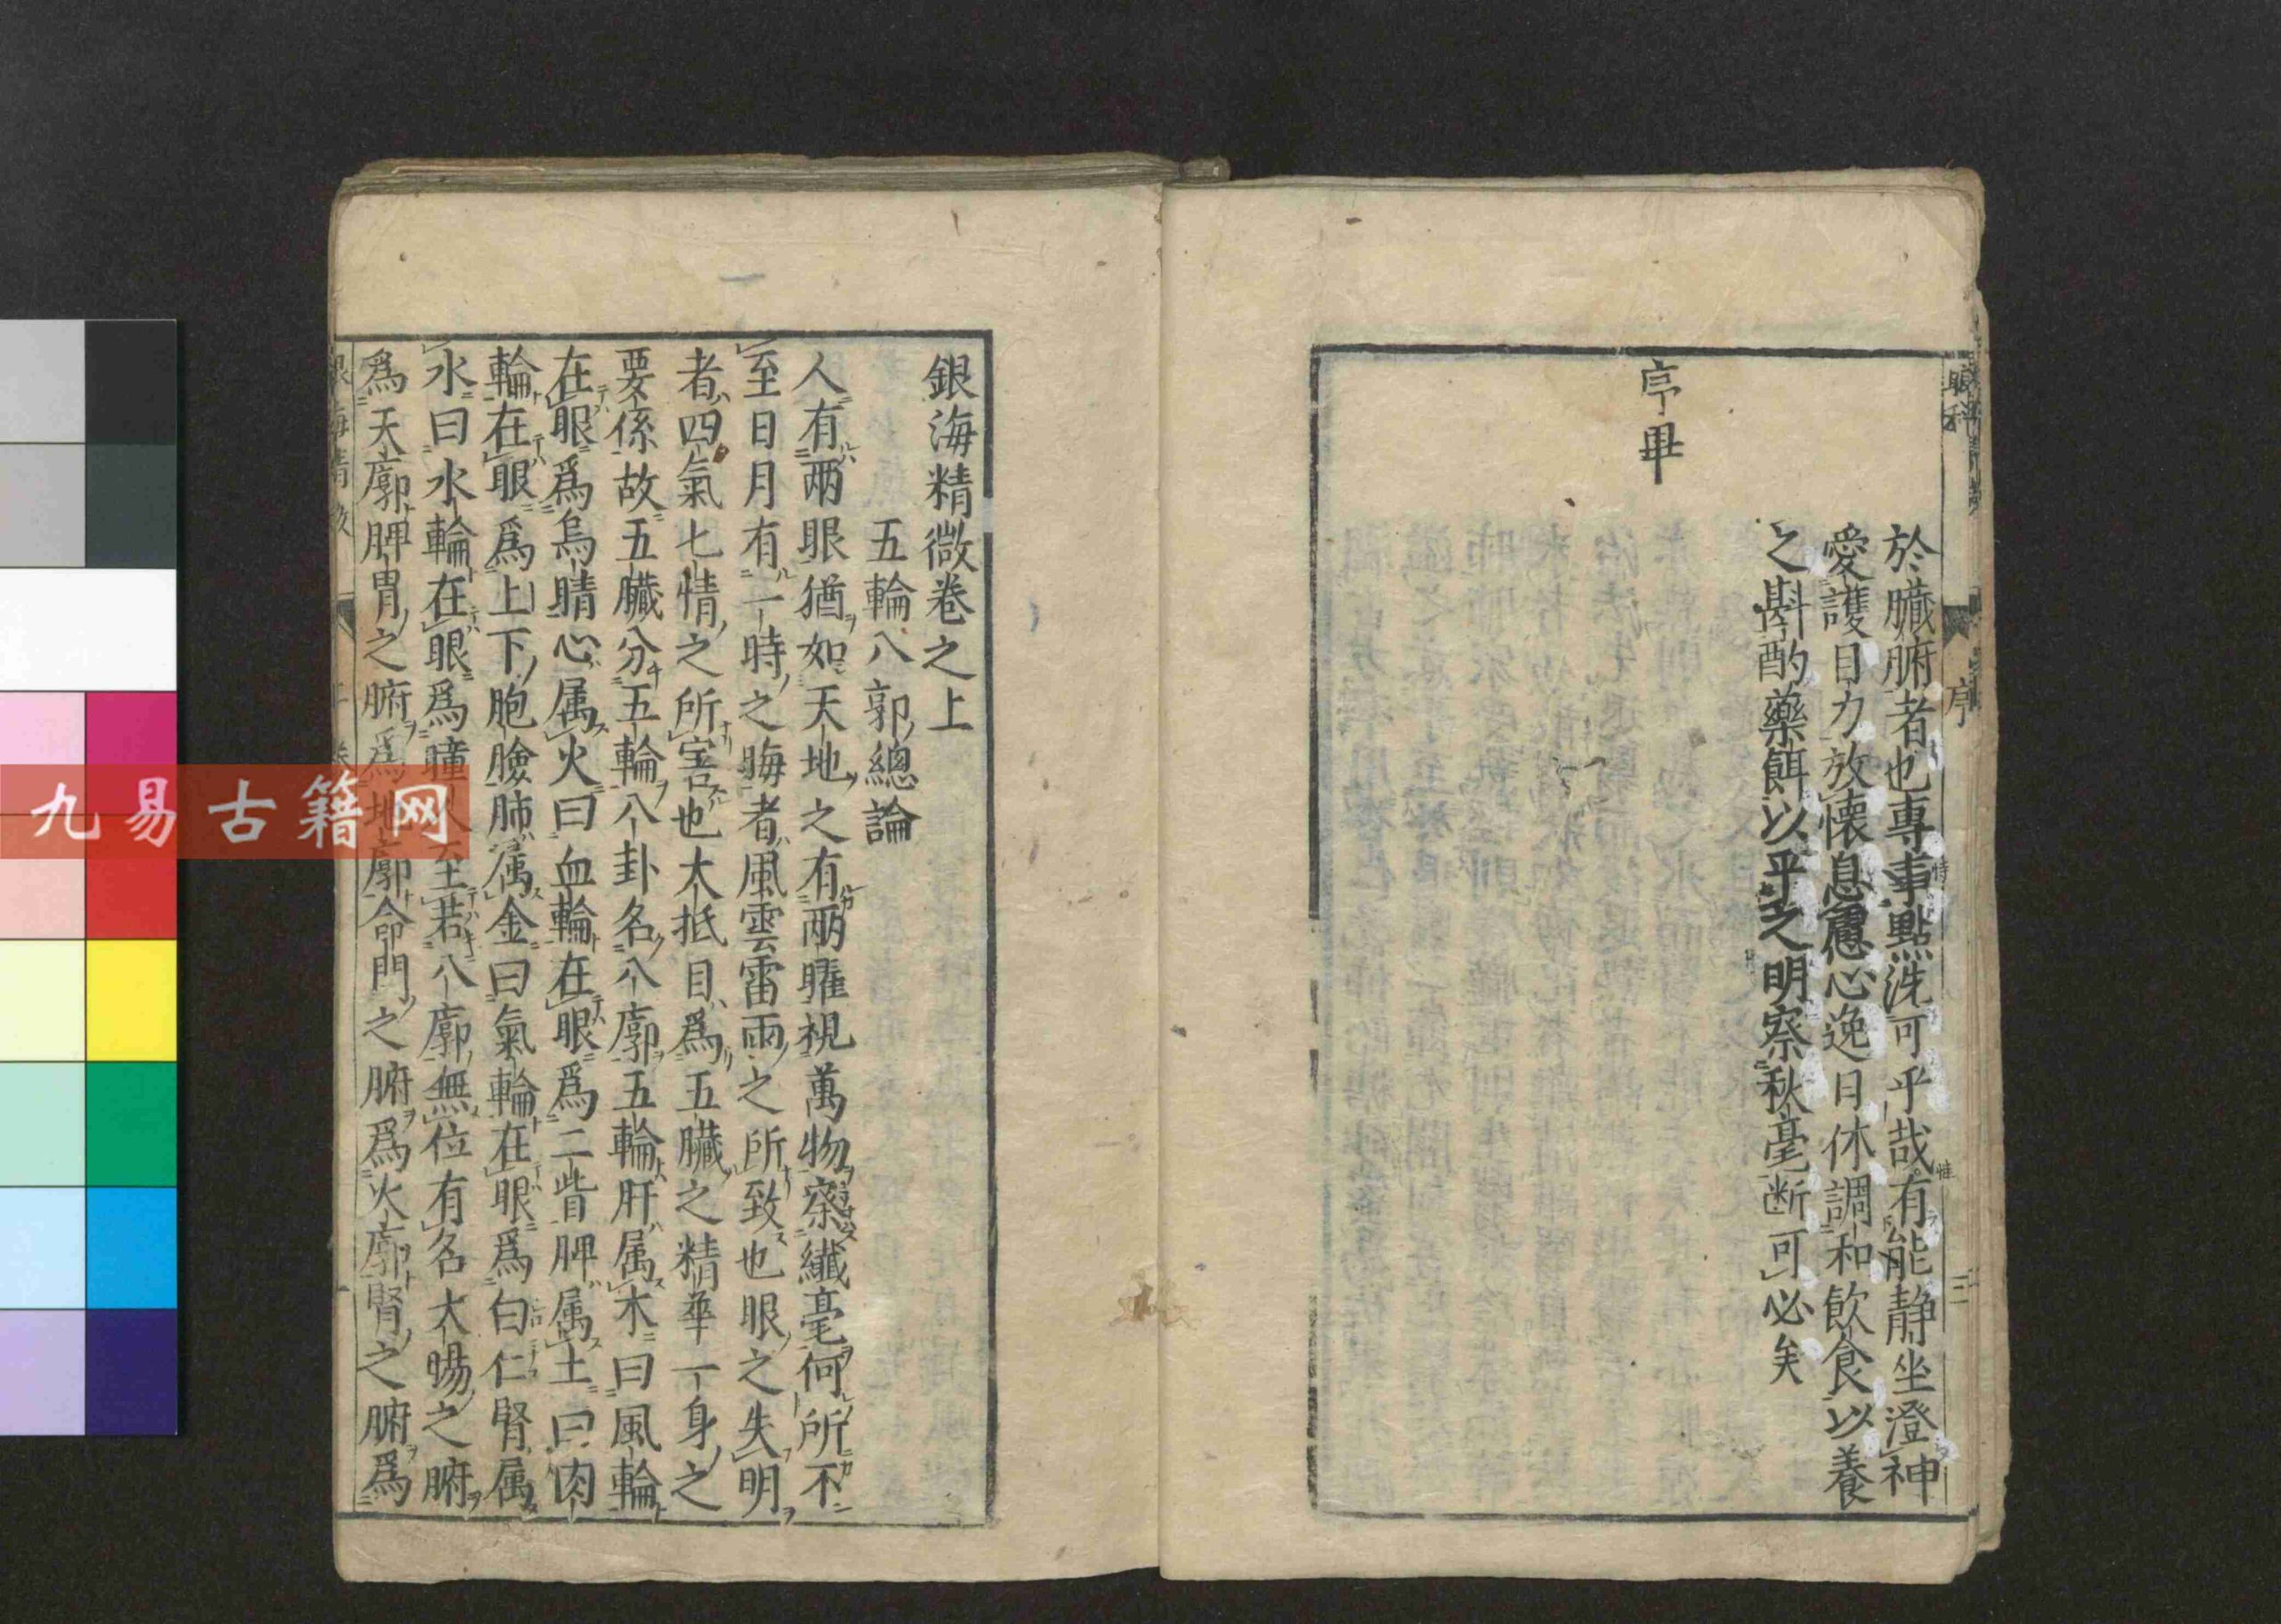 於臟腑者也專事點洗可乎哉有能静坐澄神
愛護目力放懐息慮心逸日休調和飲食以養
之斟酌藥餌以乎之明察秋毫断可必矣
序畢
眼科
序
三
銀海精微卷之上
五輪八郭總論
人有兩眼猶如天地之有兩曜視萬物察纎毫何所不
至日月有一時之晦者風雲雷雨之所致也眼之失明
者四氣七情之所害也大抵目爲五臟之精華一身之
要係故五臟分五輪八卦名八廓五輪肝属木曰風輪
在眼爲烏睛心属火曰血輪在眼爲二眥脾属土曰肉
輪在眼爲上下胞瞼肺属金曰氣輪在眼爲白仁腎属
水曰水輪在眼爲瞳人至若八廓無位有名大暘之腑
爲天廓脾胃之腑爲地廓命門之腑爲火廓腎之腑爲
九易古籍网